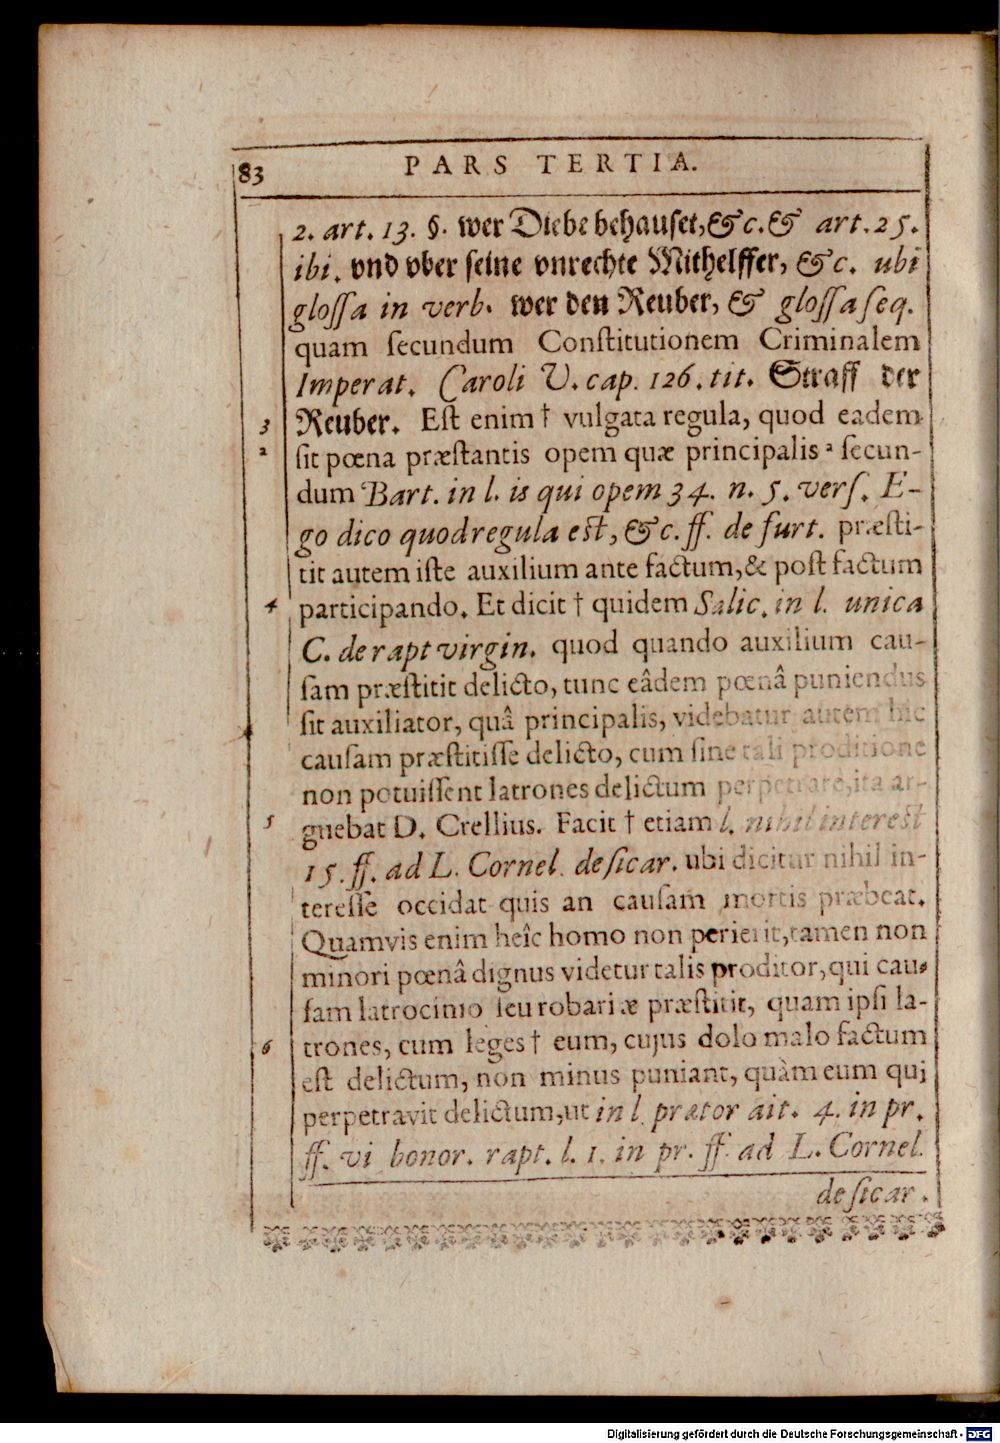 83
PARS TERTIA.
2. art. 13. §. wer Diebe behauset, &c. & art. 25.
ibi. vnd vber seine vnrechte Mithelffer, &c. ubi
glossa in verb. wer den Reuber, & glossa seq.
quam secundum Constitutionem Criminalem
Imperat. Caroli V. cap. 126. tit. Straff der
3 Reuber. Est enim † vulgata regula, quod eadem
2 sit pœna præstantis opem quæ principalis ² secun-
dum Bart. in l. is qui opem 34. n. 5. vers. E-
go dico quod regula est, &c. ff. de furt. præsti-
tit autem iste auxilium ante factum, & post factum
4 participando. Et dicit † quidem Salic. in l. unica
C. de rapt virgin. quod quando auxilium cau-
sam præstitit delicto, tunc eâdem pœnâ puniendus
sit auxiliator, quâ principalis, videbatur autem hic
causam præstitisse delicto, cum sine tali proditione
non potuissent latrones delictum perpetrare, ita ar-
5 guebat D. Crellius. Facit † etiam l. nihil interest
15. ff. ad L. Cornel. de sicar. ubi dicitur nihil in-
teresse occidat quis an causam mortis præbeat.
Quamvis enim heîc homo non perierit, tamen non
minori pœnâ dignus videtur talis proditor, qui cau-
sam latrocinio seu robariæ præstitit, quam ipsi la-
6 trones, cum leges † eum, cujus dolo malo factum
est delictum, non minus puniant, quàm eum qui
perpetravit delictum, ut in l. prætor ait. 4. in pr.
ff. vi bonor. rapt. l. 1. in pr. ff. ad L. Cornel.
de sicar.
Digitalisierung gefördert durch die Deutsche Forschungsgemeinschaft - DFG